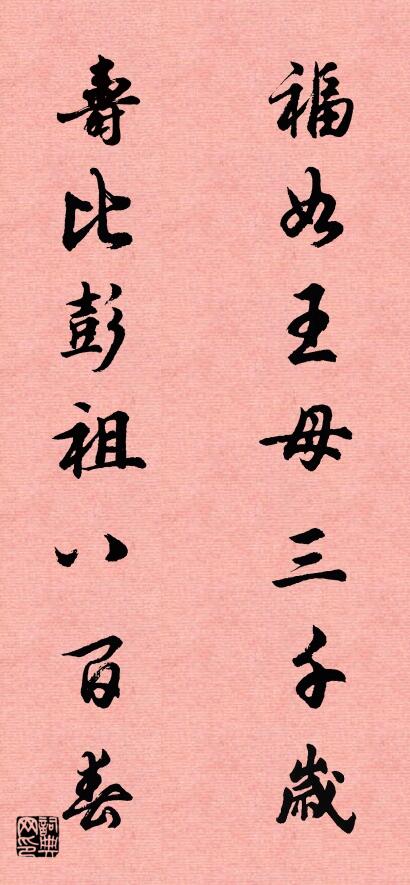 福如王母三千歲
壽比彭祖八百春
詞典网印